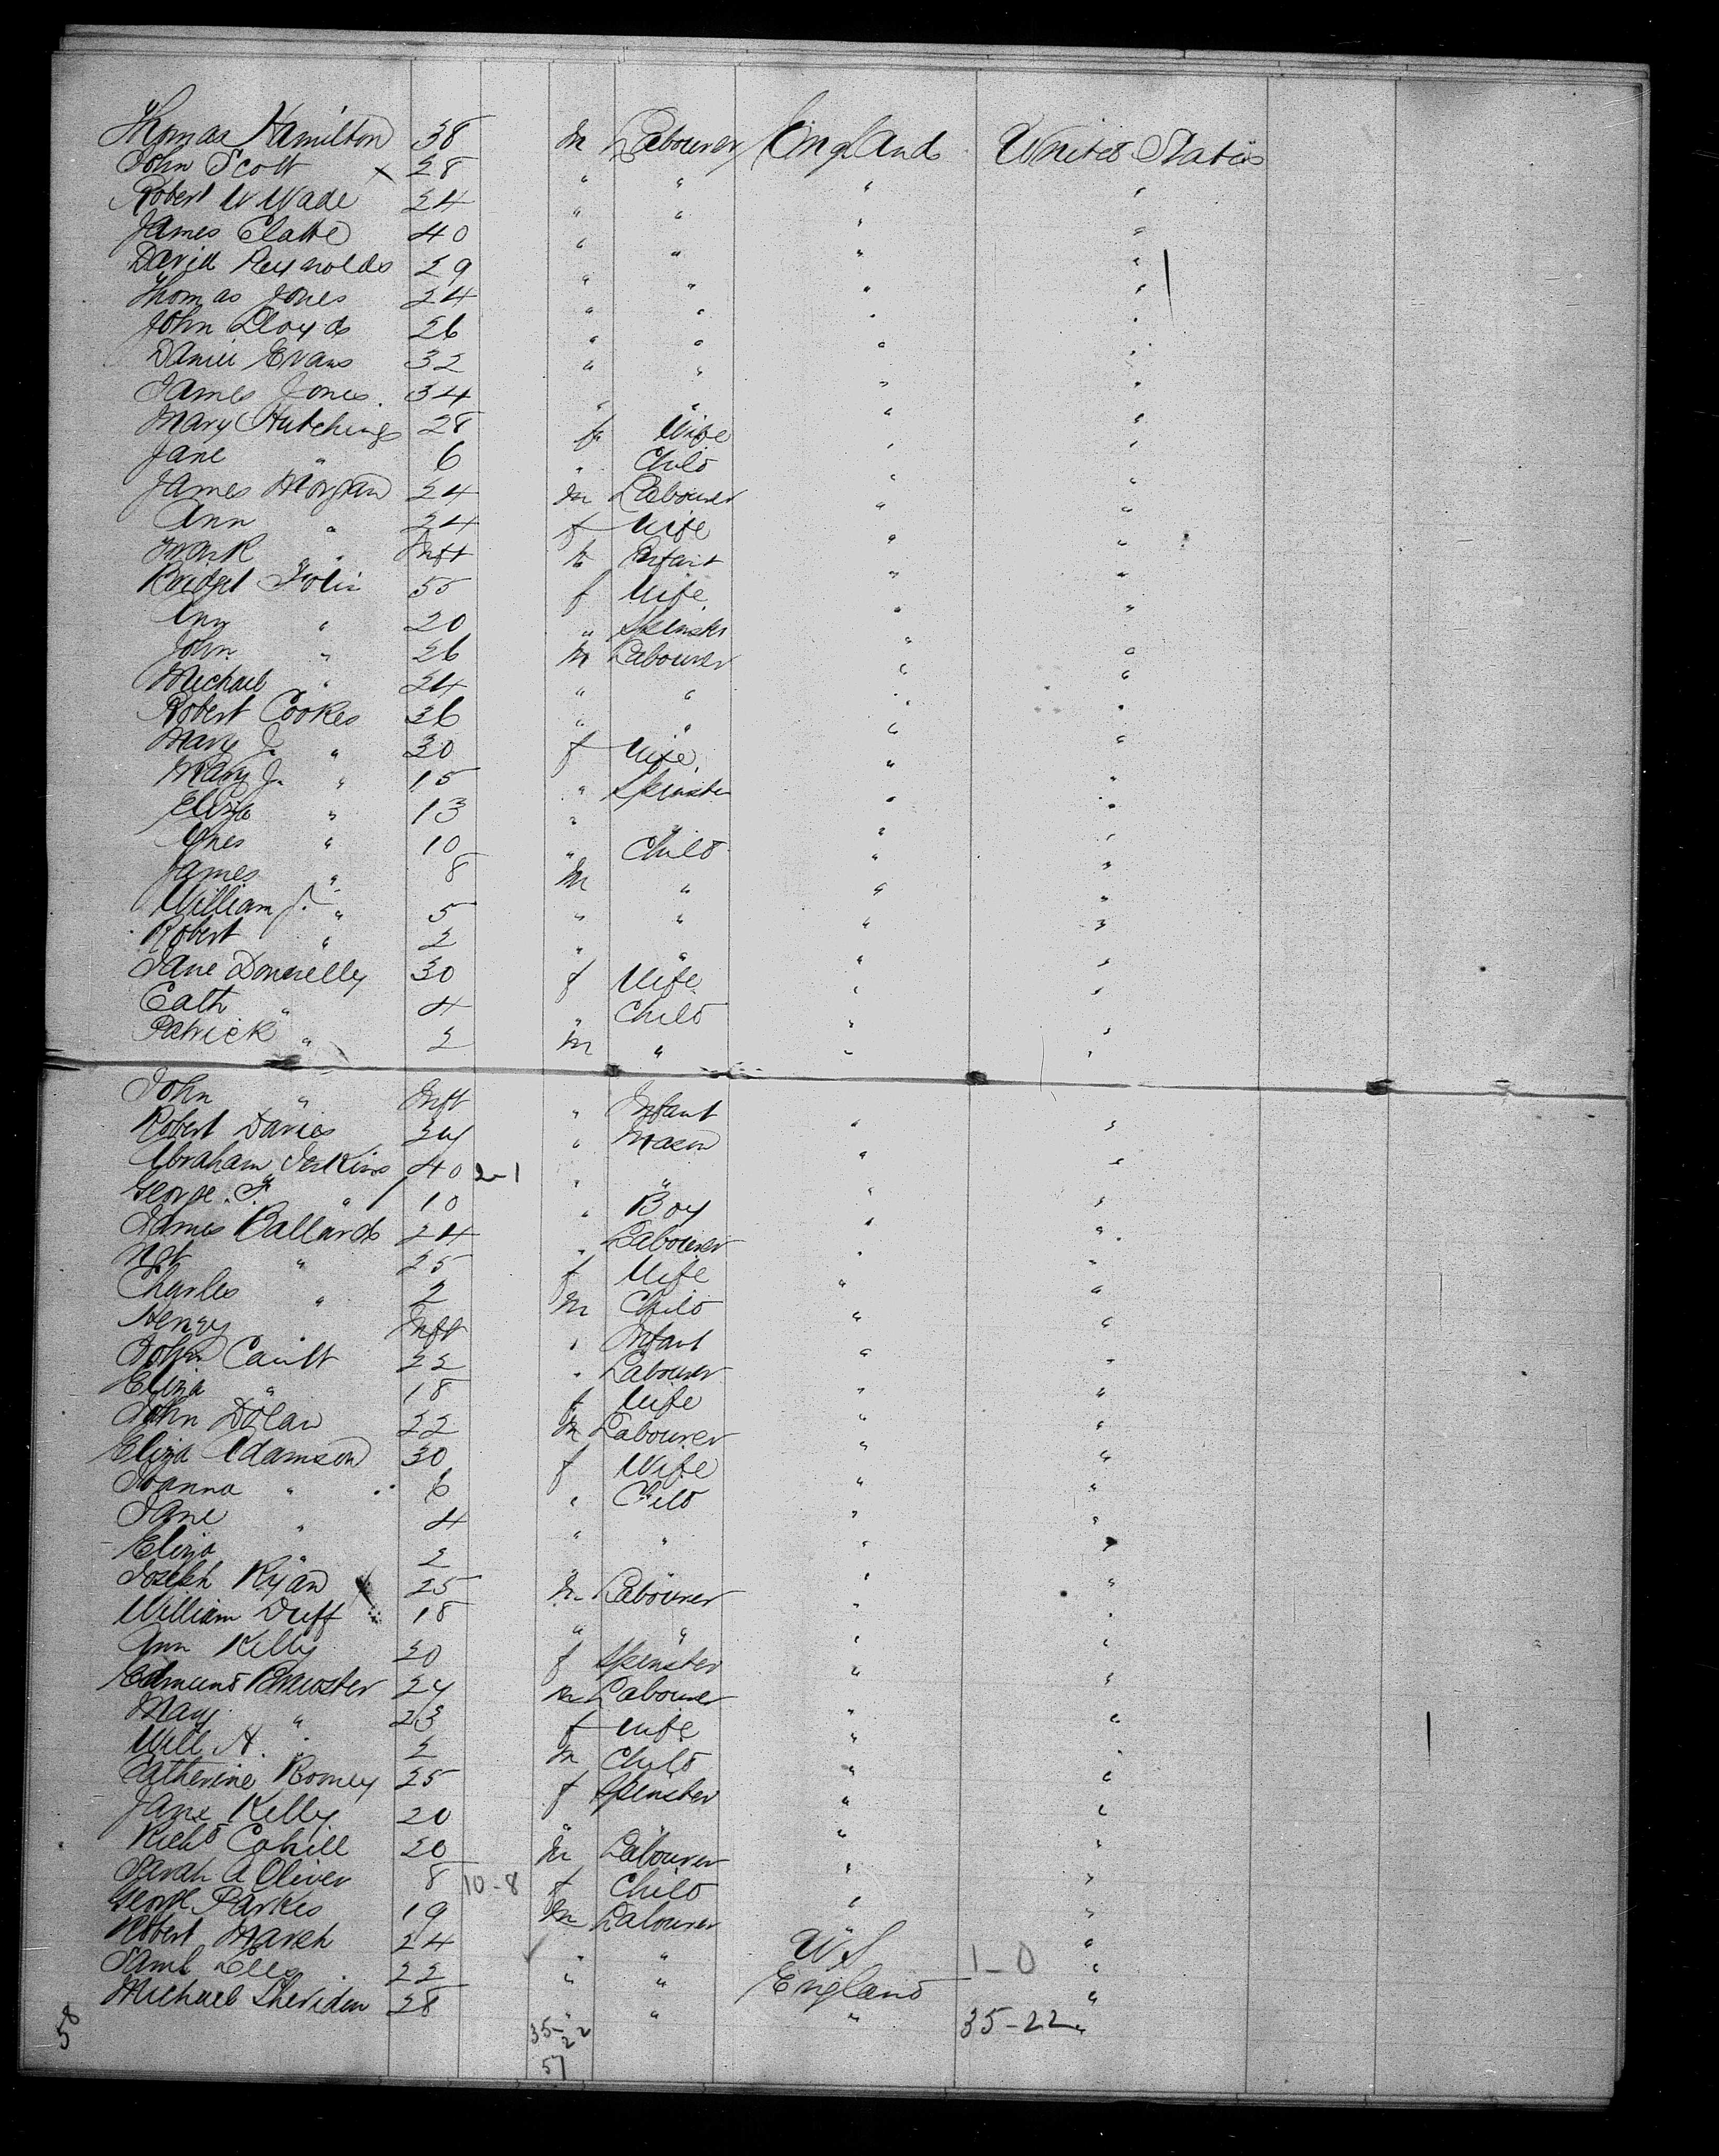 Thomas Hamilton 38 m Labourer England United States
John Scott x 28 " " " "
Robert W Wade 24 " " " "
James 40 " " " "
David Reynolds 29 " " " "
Thomas Jones 24 " " " "
John Lloyd 26 " " " "
Daniel Evans 32 " " " "
James Jones 34 " " " "
Mary Hutchings 28 f Wife " "
Jane " 6 " Child " "
James Morgan 24 m Labourer " "
Ann " 24 f Wife " "
Mark " Inft m Infant " "
Bridget 55 f Wife " "
Ann " 20 " Spinster " "
John " 26 m Labourer " "
Michael " 24 " " " "
Robert Cookes 36 " " " "
Mary J. " 30 f Wife " "
Mary J. " 15 " Spinster " "
Eliza " 13 " " " "
Agnes " 10 " Child " "
James " 8 m " " "
William J. " 5 " " " "
Robert " 2 " " " "
Jane Donnelly 30 f Wife " "
Cath " 4 " Child " "
Patrick " 2 m " " "
John " Inft " Infant " "
Robert Davies 34 " Mason " "
Abraham Jenkins 40 2-1 " " " "
George. " 10 " Boy " "
James Ballard 24 " Labourer " "
" 25 f Wife " "
Charles " 2 m Child " "
Henry Inft " Infant " "
John 22 " Labourer " "
Eliza " 18 f Wife " "
John Dolan 22 m Labourer " "
Eliza Adamson 30 f Wife " "
Joanna " 6 " Child " "
Jane " 4 " " " "
Eliza " 2 " " " "
Joseph Ryan 25 m Labourer " "
William Duff 18 " " " "
Ann Kelly 20 f Spinster " "
Edmund Brewster 24 m Labourer " "
Mary " 23 f Wife " "
Will A. " 2 m Child " "
Catherine Romey 25 f Spinster " "
Jane Kelly 20 " " " "
Richd Cahill 20 m Labourer " "
Sarah A Oliver 8 10-8 f Child " "
George Parkes 19 m Labourer " "
Robert Marsh 24 " " U S 1-0 "
Saml Lees 22 " " England "
Michael Sheridan 28 " " " "
58 35-22 35-22
57